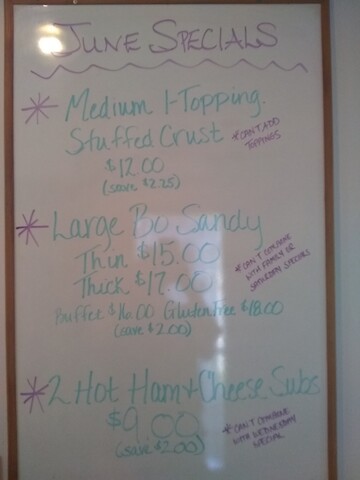 JUNE SPECIALS
* Medium 1-Topping
Stuffed Crust
*CAN'T ADD
TOPPINGS
$12.00
(save $2.25)
* Large Bo Sandy
Thin $15.00
Thick $17.00
*CAN'T COMBINE
WITH FAMILY OR
SATURDAY SPECIALS
Buffet $16.00 Gluten Free $18.00
(save $2.00)
* 2 Hot Ham + Cheese Subs
$9.00
(save $2.00)
*CAN'T COMBINE
WITH WEDNESDAY
SPECIAL